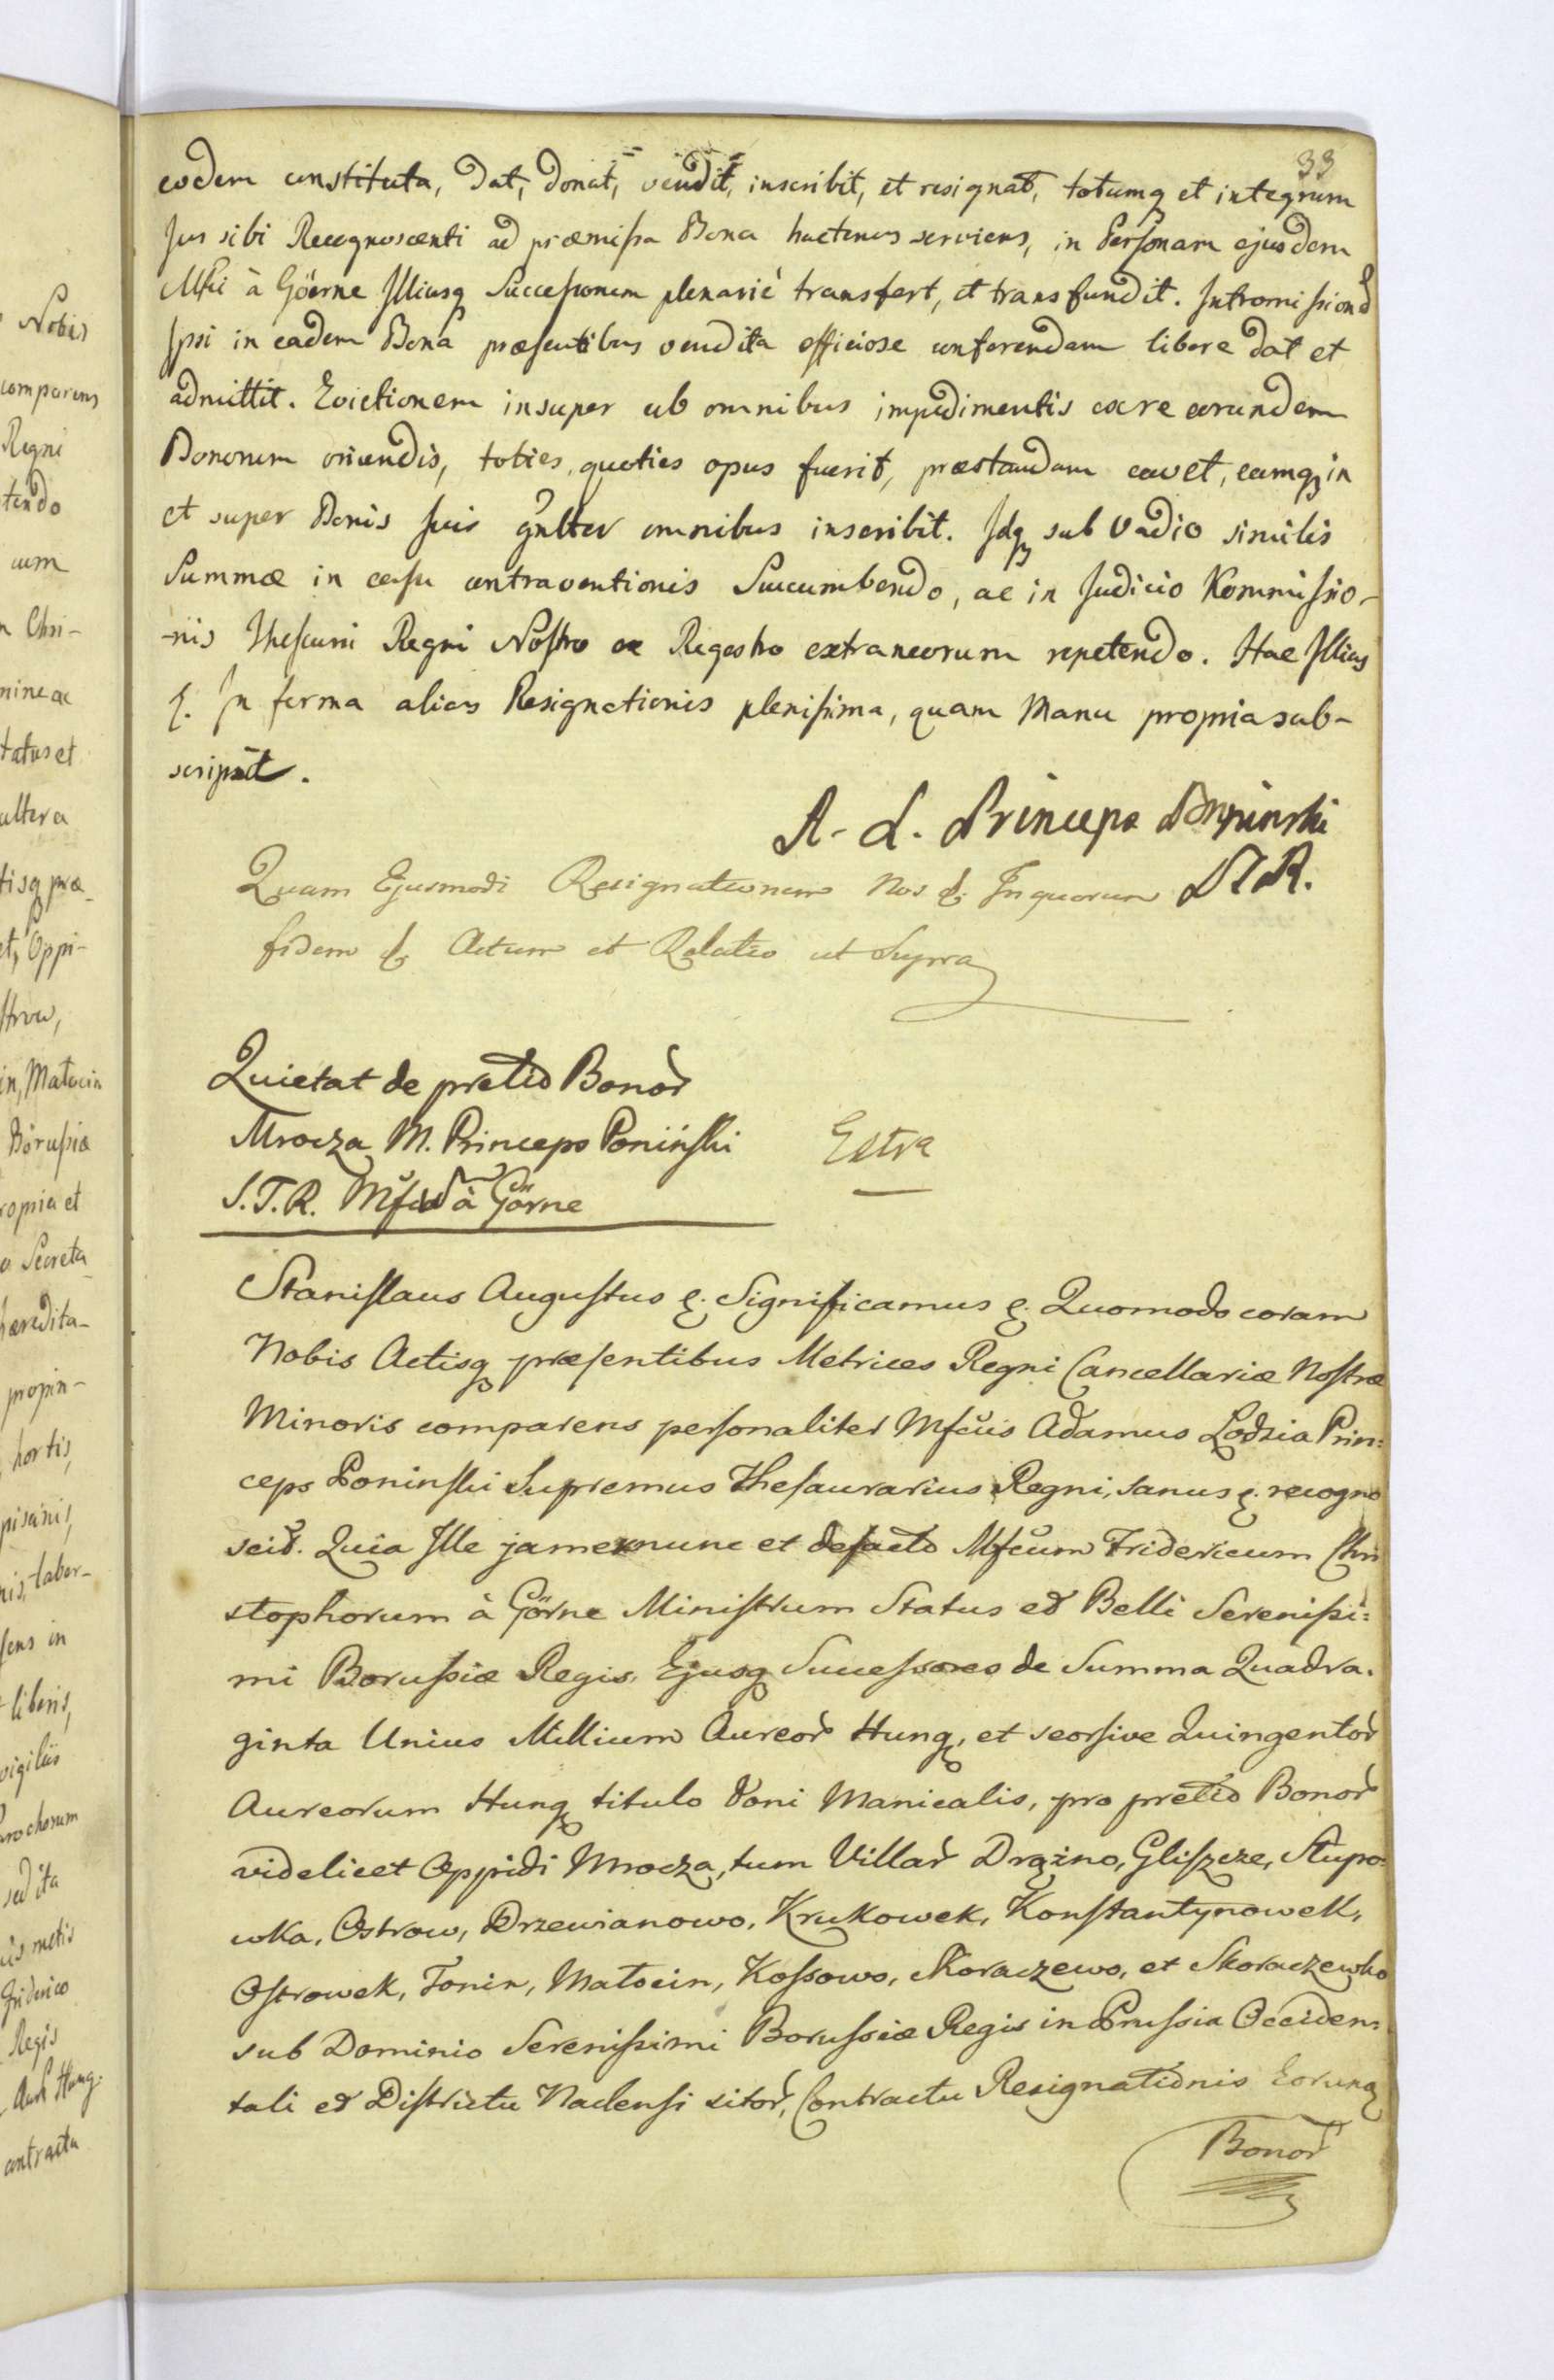 33
eodem constituta, dat, donat, vendit, inscribit, et resignat, totumq et integrum
Jus sibi Recognoscenti ad præmissa Bona hactenus serviens, in Personam ejusdem
Mfci à Göerne Illiusq Successorum plenarié transfert, et transfundit. Intromissionē
Ipsi in eadem Bona præsentibus vendita officiose conferendam libere dat et
admittit. Evictionem insuper ab omnibus impedimentis ex re eorundem
Bonorum oriundis, toties, quoties opus fuerit, præstandam cavet, eamq in
et super Bonis suis gnlter omnibus inscribit. Idq sub Vadio similis
Summæ in casu contraventionis Succumbendo, ac in Judicio Kommissio-
-nis Thesauri Regni Nostro ex Regestro extraneorum repetendo. Hac Illius
&. In forma alias Resignationis plenissima, quam Manu propria sub-
scripsit.
A. L. Princeps Poninski
Quam Ejusmodi Resignationem Nos &. In quorum
fidem & Actum et Relatio ut Supra
Quietat de pretio Bonor
Mrocza M. Princeps Poniński
S.T.R. Mfcũ à Görne
Extra
Stanislaus Augustus &. Significamus &. Quomodo coram
Nobis Actisq præsentibus Metrices Regni Cancellariæ Nostræ
Minoris comparens personaliter Mfcus Adamus Lodzia Prin=
ceps Poninski Supremus Thesaurarius Regni, sanus &. recogno
scit. Quia Ille jam ex nunc et de facto Mfcum Fridericum Chri
stophorum à Görne Ministrum Status et Belli Serenissi=
mi Borussiæ Regis, Ejusq Successores de Summa Quadra.
ginta Unius Millium Aureor Hung, et seorsive Quingentor
Aureorum Hung titulo Doni Manicalis, pro pretio Bonor
videlicet Oppidi Mrocza, tum Villar Drążno, Gliszcze, Słupo=
wka, Ostrow, Drzewianowo, Krukowek, Konstantynowek,
Ostrowek, Tonin, Matocin, Kossowo, Skoraczewo, et Skoraczewko
sub Dominio Serenissimi Borussiæ Regis in Prussia Occiden=
tali et Districtu Naclensi sitor, Contractu Resignationis Eorunq
Bonor